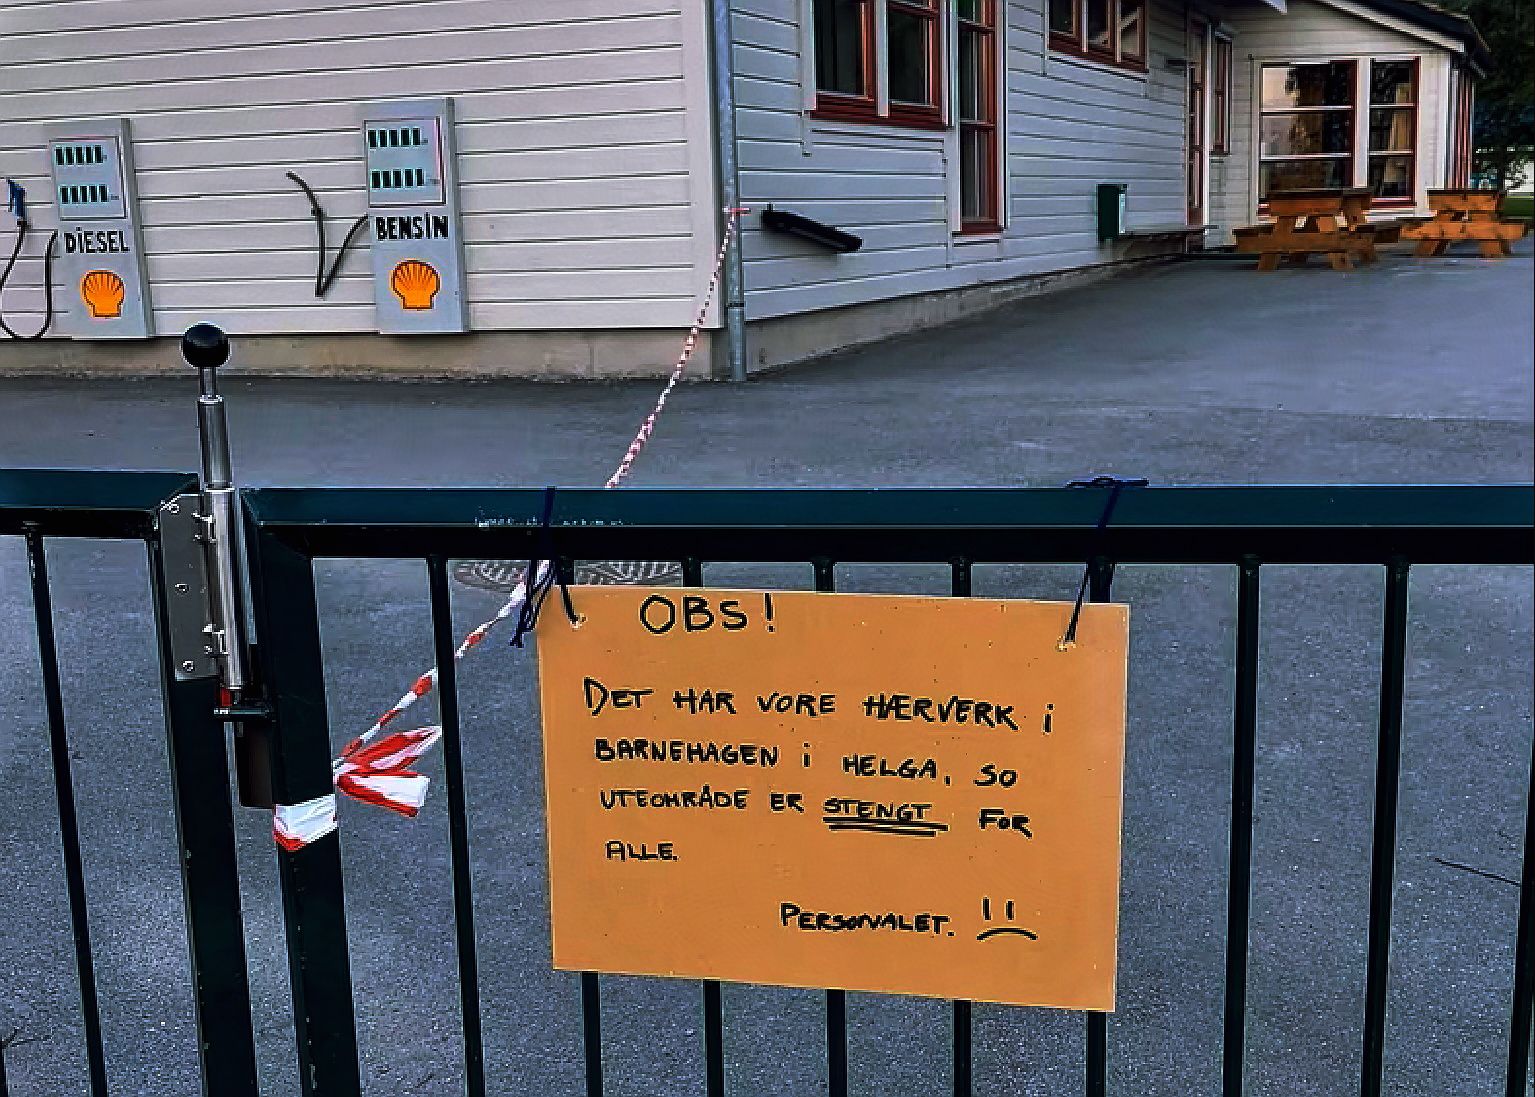 DIESEL
BENSIN
OBS!
DET HAR VORE HÆRVERK i
BARNEHAGEN i HELGA, SO
UTEOMRÅDE ER STENGT FOR
ALLE.
PERSONALET.